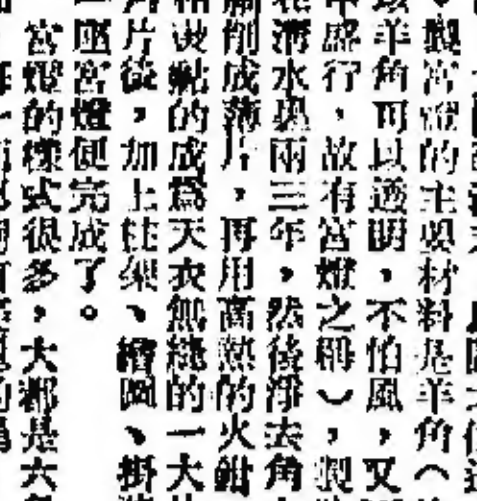 製宮燈的主要材料是羊角(
羊角可以透明,不怕風,又
盛行,故有宮燈之稱),製
清水裏兩三年,然後去角
削成薄片,再用高熱的火鉗
黏的成爲天衣無縫的一大
片後,加上柱架、繪圖、掛
座宮燈便完成了。
宮燈的樣式很多,大都是六